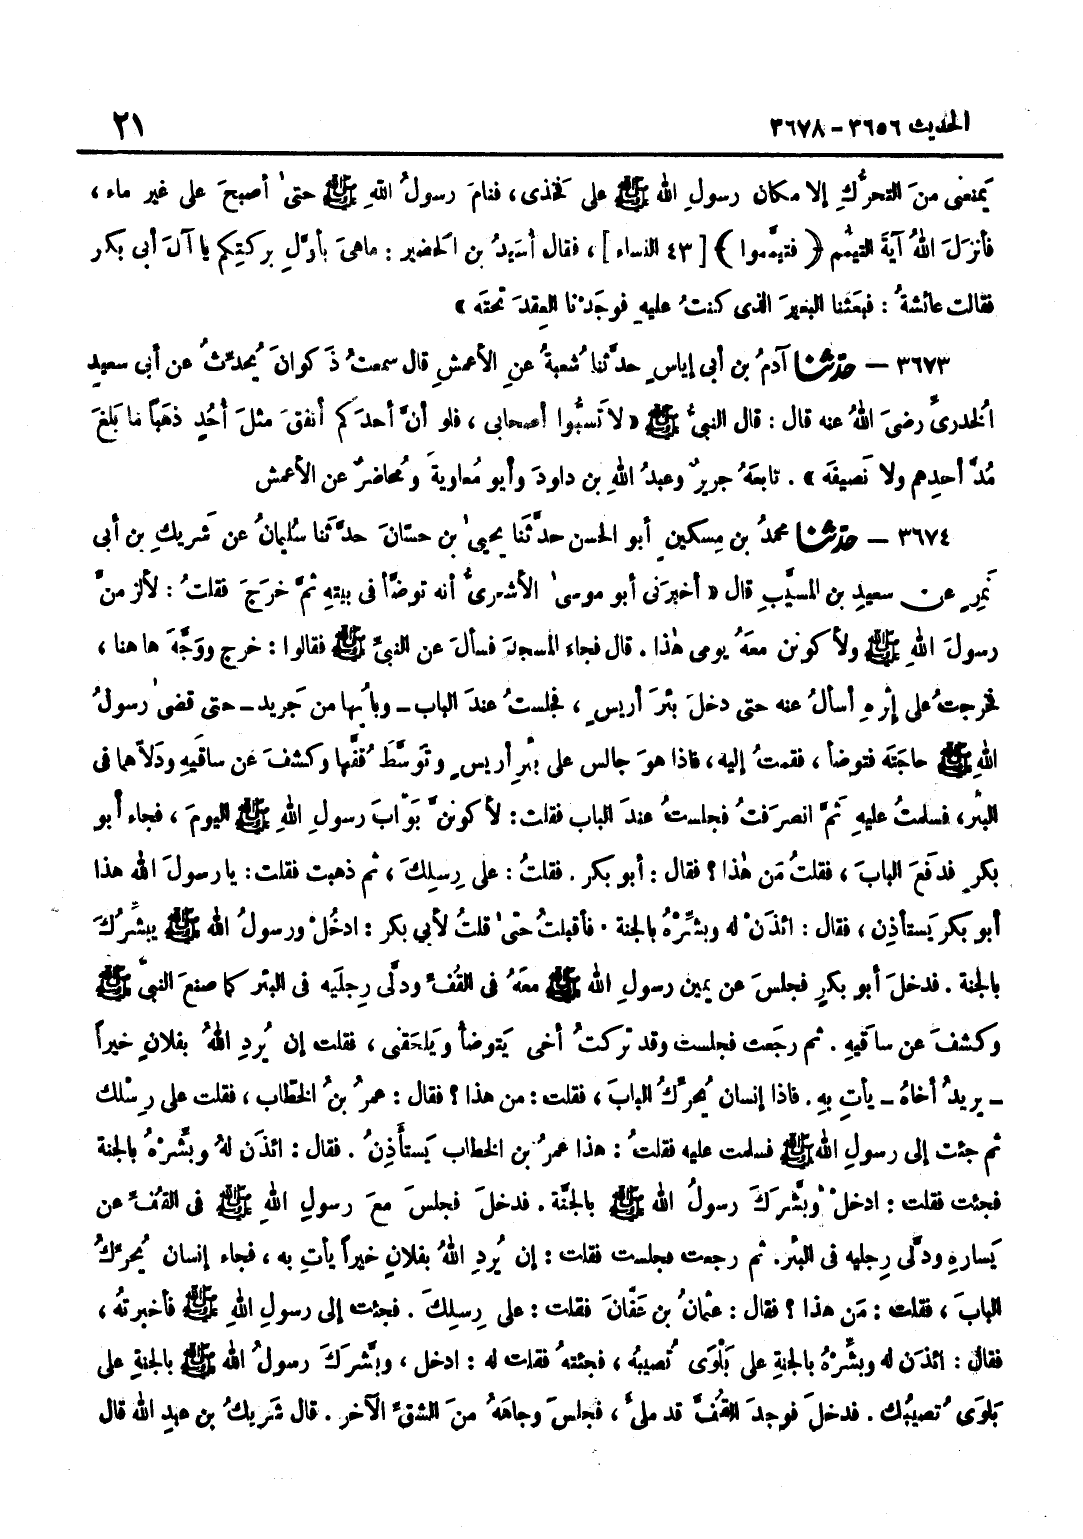 الحديث ٣٦٥٦ - ٣٦٧٨
٢١
يَمنعنى منَ التحرُّكِ إلا مكان رسولِ الله ﷺ على فَخذى، فنامَ رسولُ اللهِ ﷺ حتىٰ أصبحَ على غير ماء،
فأنزلَ اللهُ آيةَ التيمُّم ﴿ فتيمَّموا ﴾ [ ٤٣ النساء ]، فقال أُسَيدُ بن الحضير : ماهىَ بأوَّلِ بركتِكم يا آلَ أبى بكر
فقالت عائشةُ : فبعَثنا البعيرَ الذى كنتُ عليهِ فوجَدْنا العِقدَ تحتَه »
٣٦٧٣ - حدّثنا آدمُ بن أبى إياسٍ حدَّثَنا شُعبةُ عنِ الأعمشِ قال سمعتُ ذَكوانَ يُحدِّثُ عن أبى سعيدٍ
الخدرىِّ رضىَ اللهُ عنه قال : قال النبىُّ ﷺ « لا تَسبُّوا أصحابى ، فلو أنَّ أحدَكم أنفقَ مثلَ أُحُدٍ ذهَباً ما بلغَ
مُدَّ أحدِهم ولا نَصيفَه » . تابعَهُ جريرٌ وعبدُ اللهِ بن داودَ وأبو مُعاويةَ ومُحاضرٌ عن الأعمش
٣٦٧٤ - حدّثنا محمدُ بن مِسكينٍ أبو الحسن حدَّثَنا يحيىٰ بن حسّانَ حدَّثَنا سُليمانُ عن شَريكِ بن أبى
نَمِرٍ عن سعيدِ بن المسيَّبِ قال « أخبرَنى أبو موسىٰ الأشعرىُّ أنه توضَّأ فى بيتِهِ ثمَّ خرَجَ فقلتُ : لألزمنَّ
رسولَ اللهِ ﷺ ولأكونن معَهُ يومى هٰذا . قال فجاء المسجدَ فسألَ عن النبىِّ ﷺ فقالوا : خرج ووَجَّهَ ها هنا ،
فخرجتُ على إثْرِهِ أسألُ عنه حتى دخلَ بئرَ أريسٍ ، فجلستُ عندَ الباب - وبابُها من جَريد - حتى قضىٰ رسولُ
اللهِ ﷺ حاجتَه فتوضأ ، فقمتُ إليه ، فاذا هوَ جالس على بئرِ أريسٍ وتوسَّطَ قُفَّها وكشفَ عن ساقَيهِ ودَلاّهما فى
البئر، فسلمتُ عليهِ ثمَّ انصرَفتُ فجلستُ عندَ الباب فقلت: لأكوننَّ بَوّابَ رسولِ اللهِ ﷺ اليومَ ، فجاء أبو
بكرٍ فدفَعَ البابَ ، فقلتُ مَن هٰذا ؟ فقال : أبو بكر . فقلتُ : على رِسلِكَ ، ثم ذهبت فقلت: يا رسولَ الله هذا
أبو بكر يَستأذِن ، فقال : ائذَنْ له وبشِّرْهُ بالجنة . فأقبلتُ حتىٰ قلتُ لأبي بكر : ادخُلْ ورسولُ الله ﷺ يبشِّرُكَ
بالجنة . فدخلَ أبو بكرٍ فجلسَ عن يمين رسولِ الله ﷺ معَهُ فى القُفِّ ودلّى رِجليَه فى البئر كما صنعَ النبىُّ ﷺ
وكشفَ عن ساقَيهِ . ثم رجَعت فجلست وقد تركتُ أخى يَتوضأ ويَلحَقنى ، فقلت إن يُردِ اللهُ بفلانٍ خيراً
- يريدُ أخاهُ - يأتِ بهِ . فاذا إنسان يُحرِّكُ البابَ ، فقلت : من هذا ؟ فقال : عمرُ بنُ الخطّاب ، فقلت على رِسْلك
ثم جئت إلى رسولِ اللهِ ﷺ فسلمت عليه فقلتُ : هذا عمرُ بن الخطاب يَستأذِنُ . فقال : ائذَن لهُ وبشَّرْهُ بالجنة
فجئت فقلت : ادخلْ وبشَّرَكَ رسولُ الله ﷺ بالجنَّة . فدخلَ فجلسَ معَ رسولِ اللهِ ﷺ فى القُفِّ عن
يَسارهِ ودلَّى رِجليه فى البئر. ثم رجعت فجلست فقلت : إن يُردِ اللهُ بفلانٍ خيراً يأتِ به ، فجاء إنسان يُحرِّكُ
البابَ ، فقلت : مَن هذا ؟ فقال : عثمانُ بن عَفّانَ فقلت : على رِسلِكَ . فجئت إلى رسولِ اللهِ ﷺ فأخبرتهُ ،
فقال : ائذَن له وبشِّرْهُ بالجنةِ على بَلْوَى تُصيبُه ، فجئتهُ فقلت له : ادخل ، وبشَّرَكَ رسولُ الله ﷺ بالجنةِ على
بَلوَى تُصيبُك . فدخلَ فوجدَ القُفَّ قد ملىءَ ، فجلسَ وجاهَهُ منَ الشقِّ الآخر . قال شَريكُ بن عبدِ الله قال